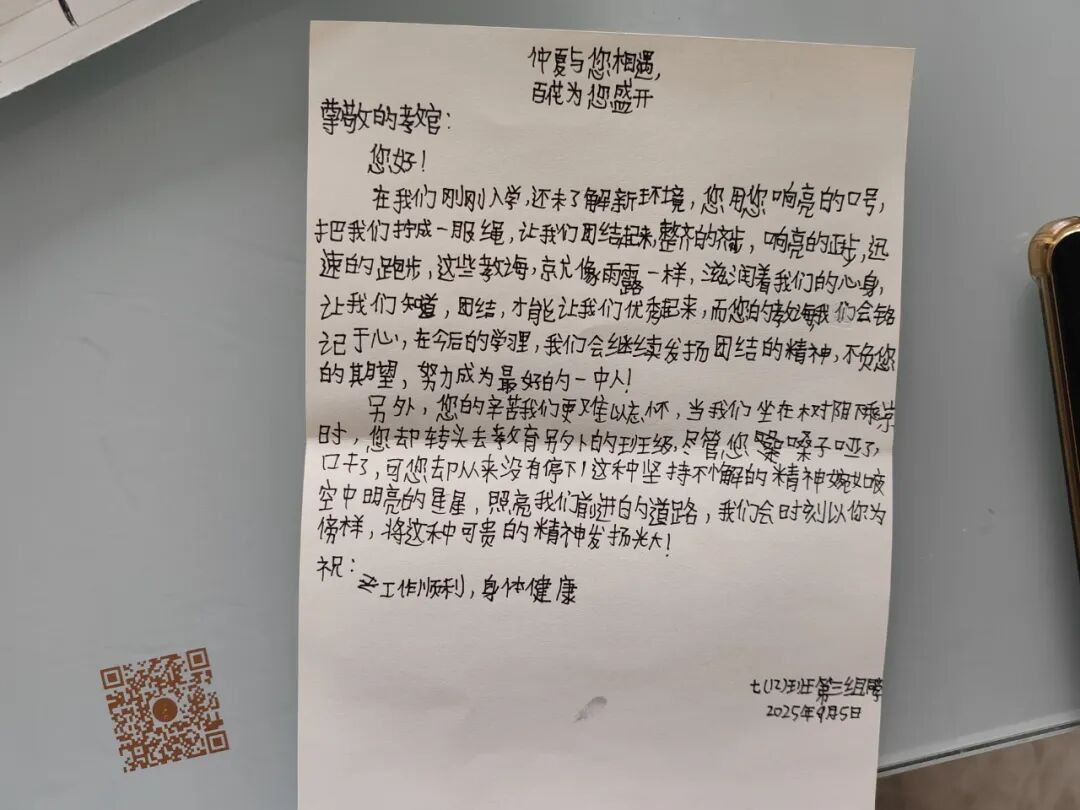 仲夏与您相遇,
百花为您盛开
尊敬的教官:
您好!
在我们刚刚入学,还未了解新环境,您用您响亮的口号,
把我们拧成一股绳,让我们团结起来,整齐的齐步,响亮的正步,迅
速的跑步,这些教诲,就像雨露一样,滋润着我们的心身,
让我们知道,团结,才能让我们优秀起来,而您的教诲我们会铭
记于心,在今后的学理,我们会继续发扬团结的精神,不负您
的期望,努力成为最好的一中人!
另外,您的辛苦我们更难以忘怀,当我们坐在树阴下乘凉
时,您却转头去教育另外的班级,尽管您嗓子哑了,
口干了,可您却从来没有停下!这种坚持不懈的精神婉如夜
空中明亮的星星,照亮我们前进的道路,我们会时刻以你为
傍样,将这种可贵的精神发扬光大!
祝:
工作顺利,身体健康
七(12)班第三组
2025年9月5日